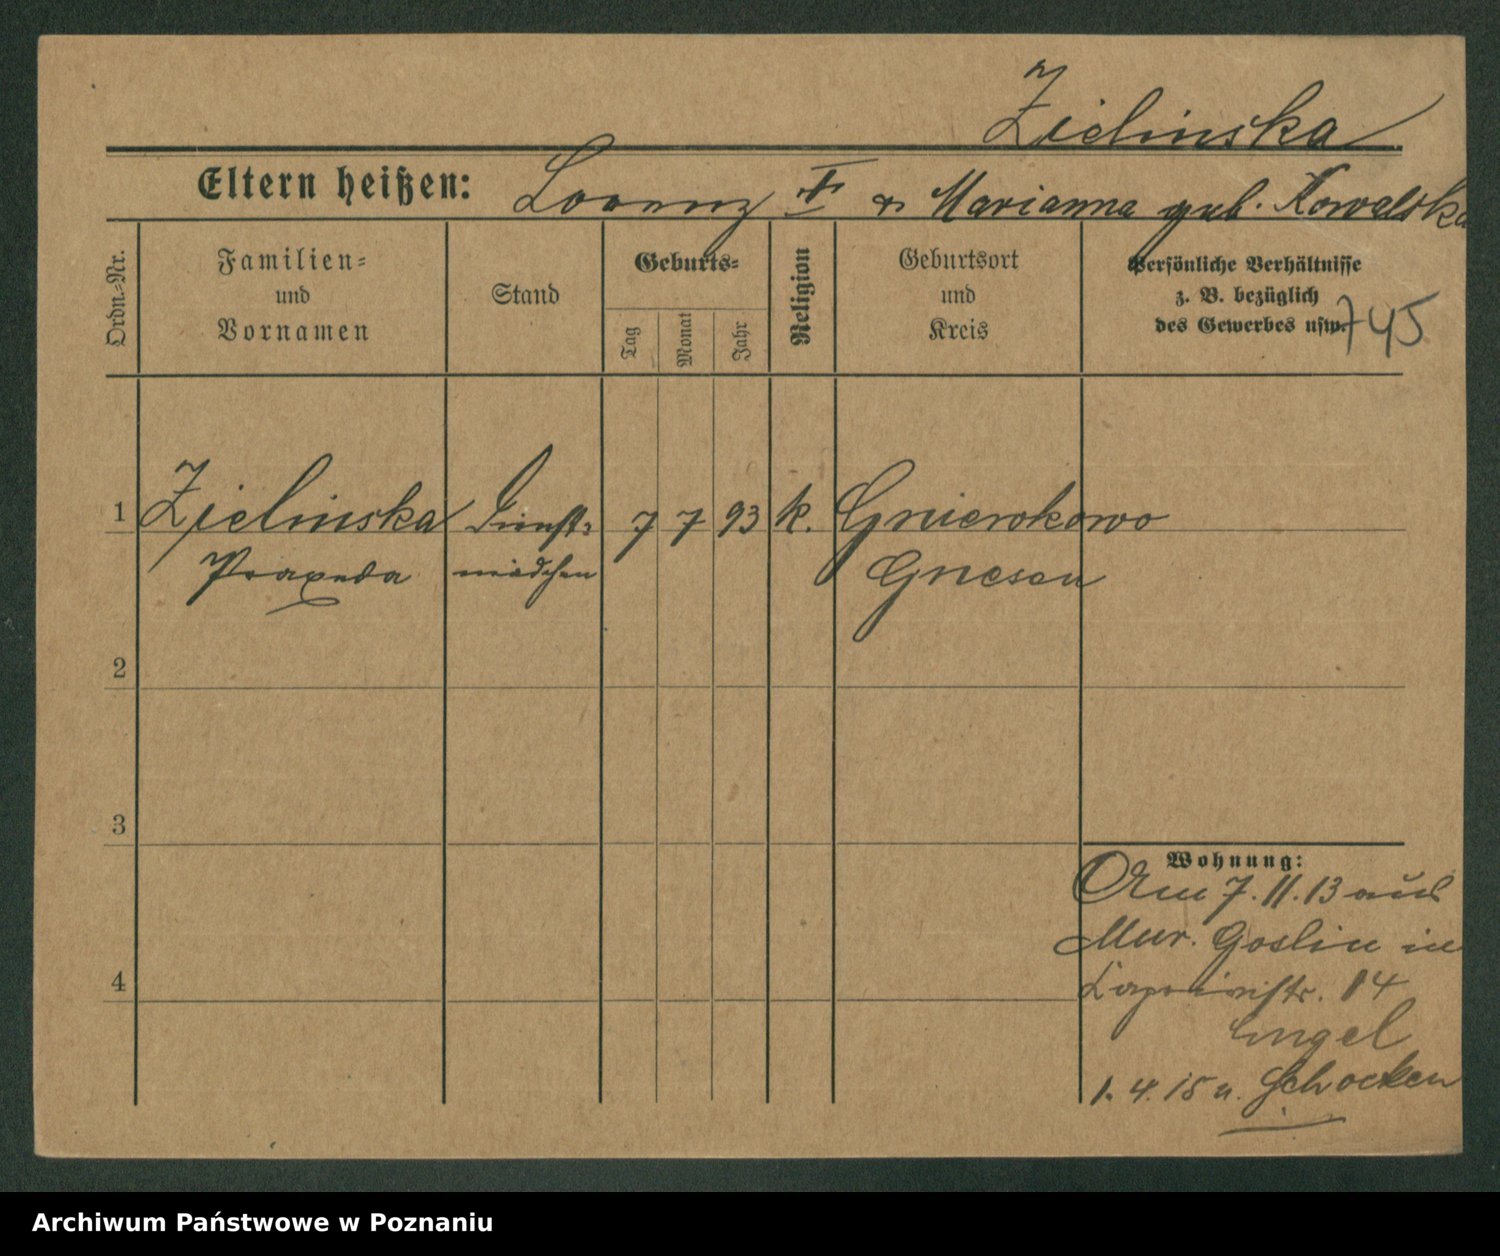 Zielinska
Eltern heißen: Lorenz † & Marianna geb. Kowalska
Ordn.=Nr.
Familien=
und
Vornamen
Stand
Geburts=
Tag
Monat
Jahr
Religion
Geburtsort
und
Kreis
Persönliche Verhältnisse
z. B. bezüglich
des Gewerbes usw.
745
1 Zielinska Dienst= 7 7 93 k. Gniewkowo
Praxeda mädchen Gnesen
2
3
4
Wohnung:
Am 7.11.13 aus
Mur. Goslin in
14
Engel
1.4.15 n. Schocken
Archiwum Państwowe w Poznaniu